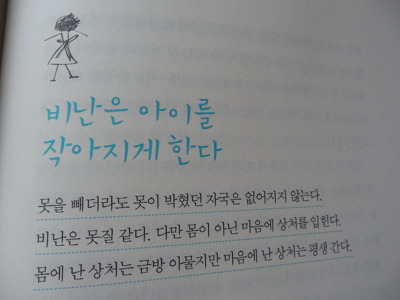 비난은 아이를
작아지게 한다
못을 빼더라도 못이 박혔던 자국은 없어지지 않는다.
비난은 못질 같다. 다만 몸이 아닌 마음에 상처를 입힌다.
몸에 난 상처는 금방 아물지만 마음에 난 상처는 평생 간다.